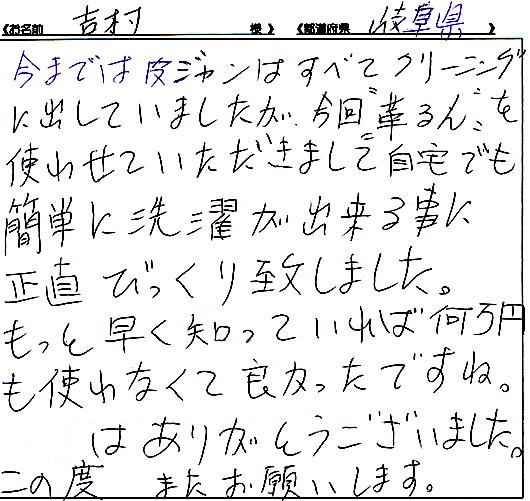 《お名前 吉村 様》《都道府県 岐阜県 》
今までは皮ジャンはすべてクリーニング
に出していましたが、今回"革るん"を
使わせていただきまして自宅でも
簡単に洗濯が出来る事に
正直びっくり致しました。
もっと早く知っていれば何万円
も使わなくて良かったですね。
はありがとうございました。
この度 またお願いします。